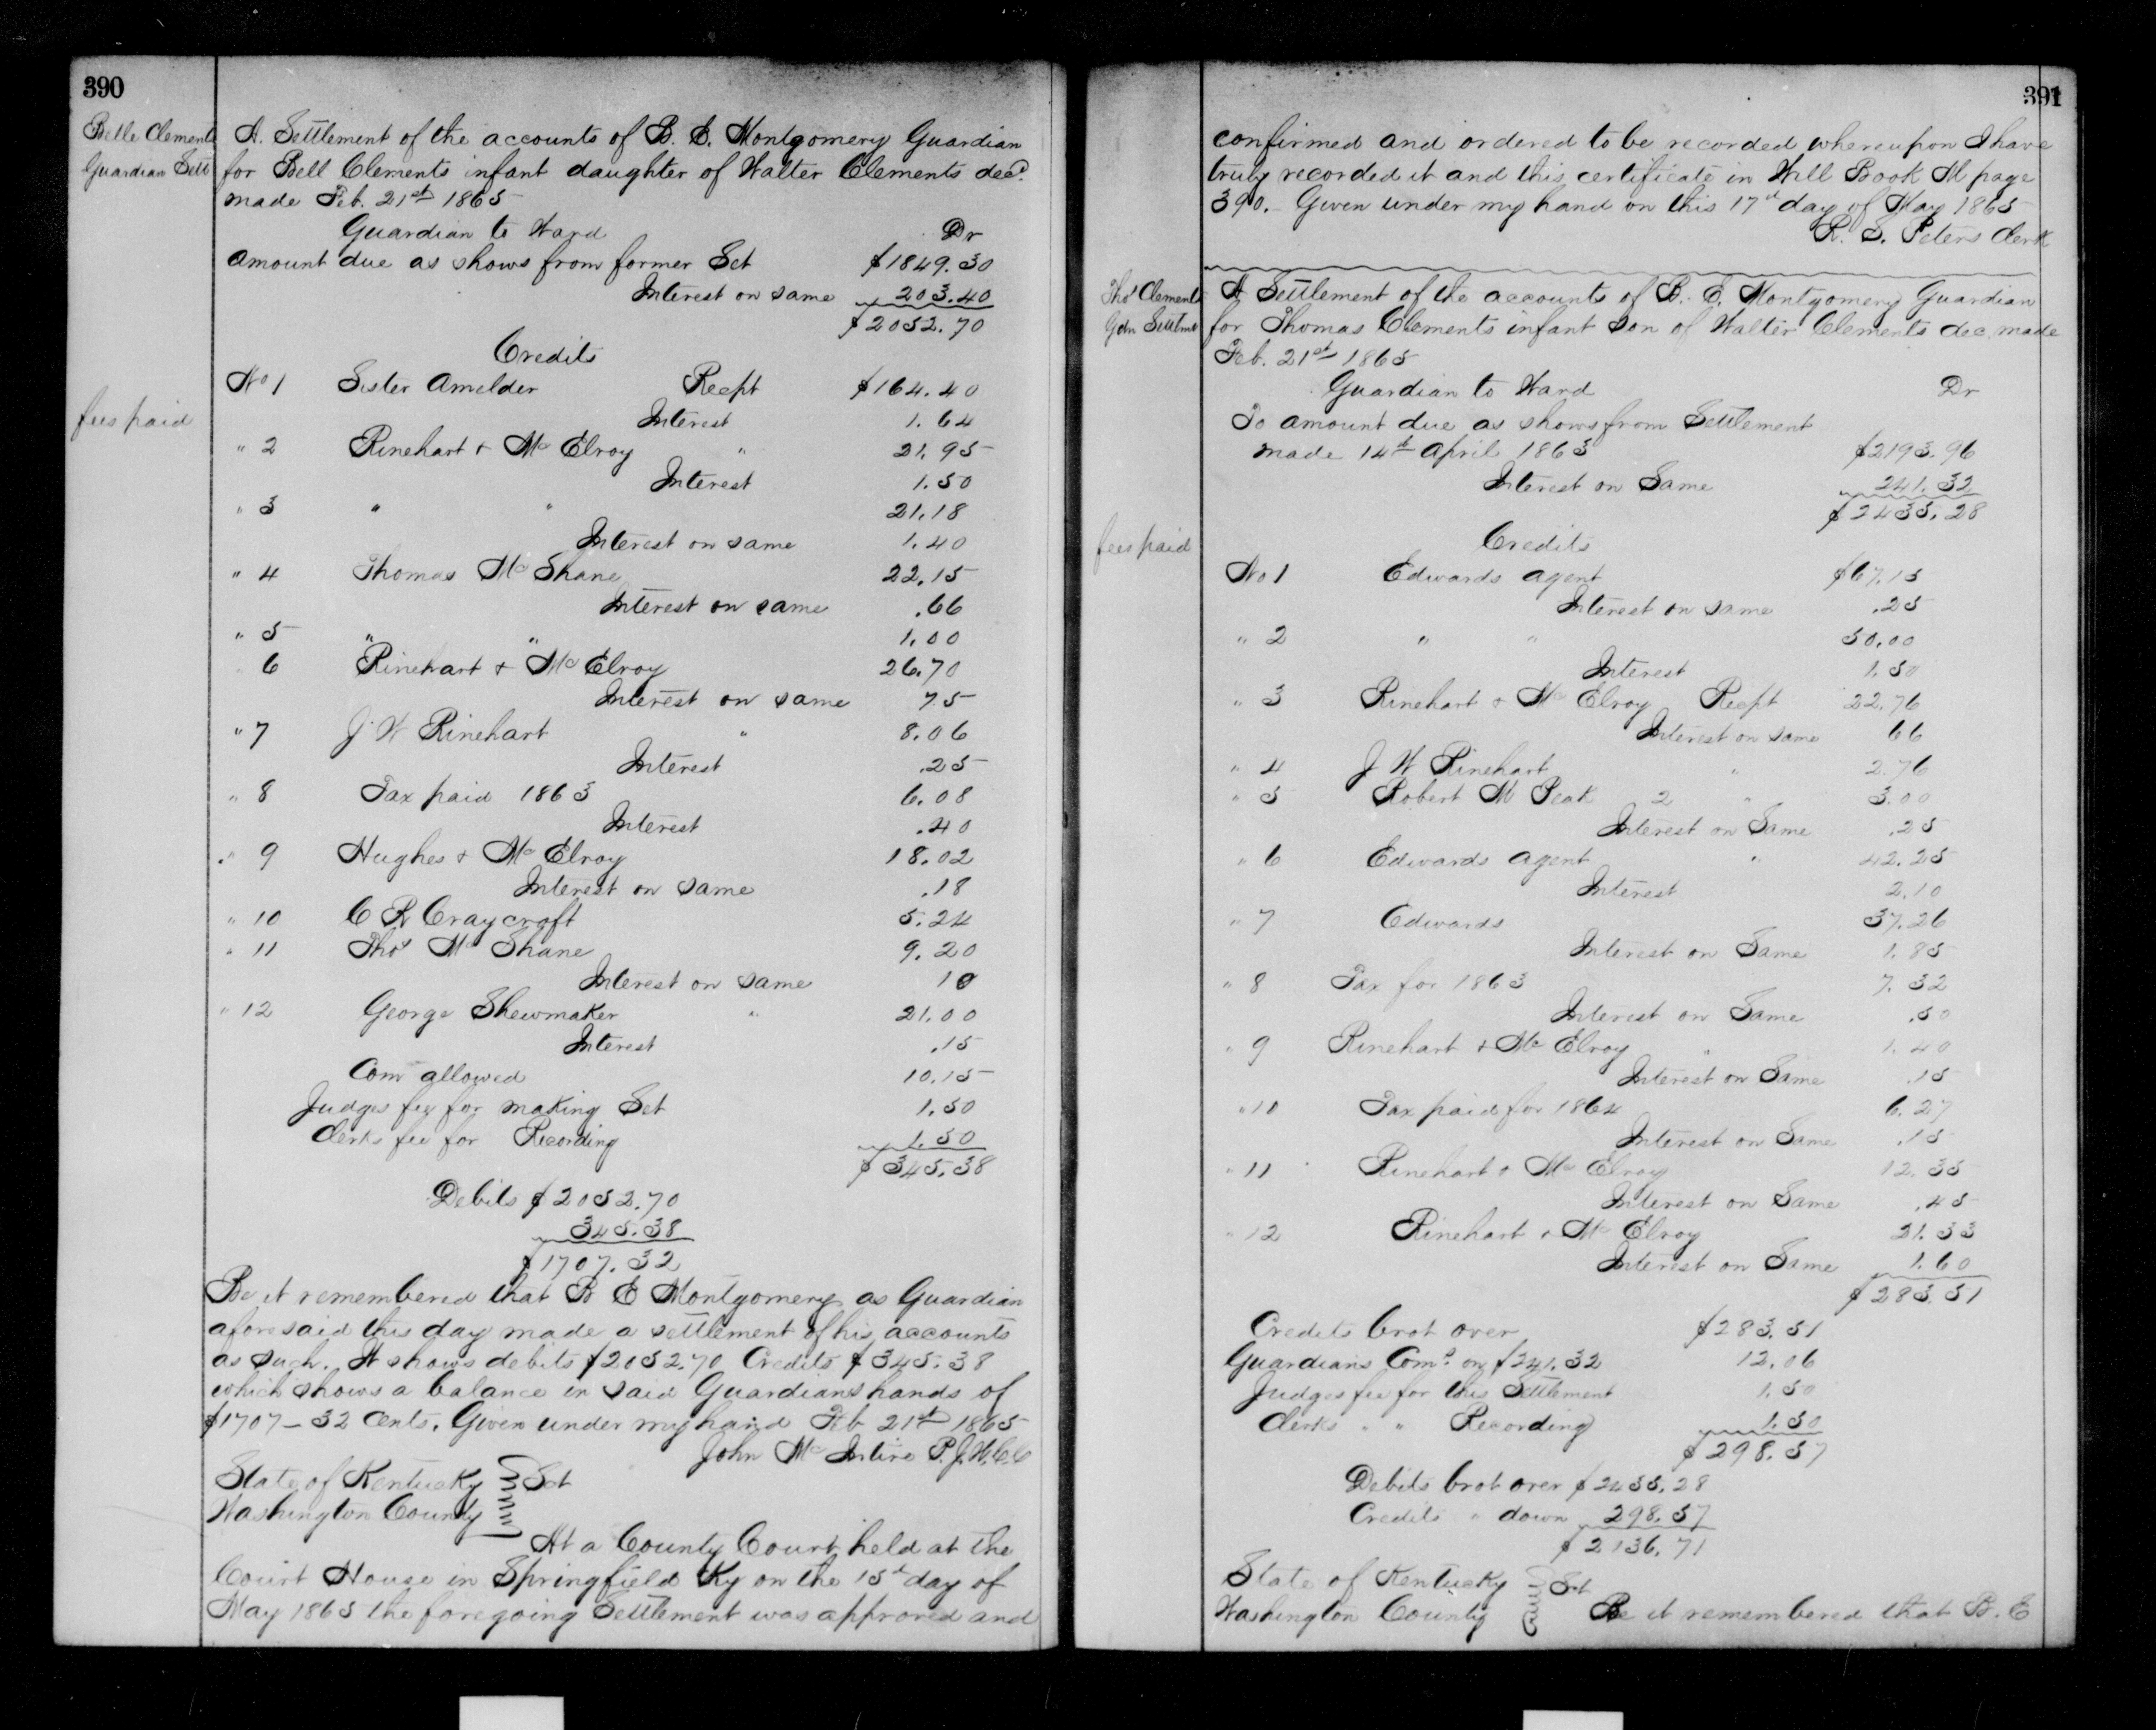 390
Belle Clements
Guardian Sett
A. Settlement of the accounts of B. E. Montgomery Guardian
for Bell Clements infant daughter of Walter Clements decd.
made Feb. 21st 1865
Guardian to Ward Dr
amount due as shows from former Set $1849.30
Interest on same 203.40
$2052.70
Credits
No 1 Sister Amelder Recpt $164.40
fees paid
Interest 1.64
" 2 Rinehart & Mc Elroy " 21.95
Interest 1.50
" 3 " " 21.18
Interest on same 1.40
" 4 Thomas Mc Shane 22.15
Interest on same .66
" 5 " " 1.00
6 Rinehart & Mc Elroy 26.70
Interest on same 75
" 7 J W Rinehart " 8.06
Interest .25
" 8 Tax paid 1863 6.08
Interest .40
" 9 Hughes & Mc Elroy 18.02
Interest on same .18
" 10 C R Craycroft 5.24
" 11 Thos Mc Shane 9.20
Interest on same 10
" 12 George Shewmaker " 21.00
Interest .15
Com allowed 10.15
Judges fee for making Set 1.50
Clerks fee for Recording 1.50
$345.38
Debits $2052.70
345.38
$1707.32
Be it remembered that B E Montgomery as Guardian
aforesaid this day made a settlement of his accounts
as such. It shows debits $2052.70 Credits $345.38
which shows a balance in said Guardians hands of
$1707-32 cents. Given under my hand Feb 21st 1865
John Mc Intire P.J.W.C.C
State of Kentucky Sct
Washington County
At a County Court held at the
Court House in Springfield Ky on the 15th day of
May 1865 the foregoing Settlement was approved and
391
confirmed and ordered to be recorded whereupon I have
truly recorded it and this certificate in Will Book M page
390. Given under my hand on this 17th day of May 1865
R. S. Peters Clerk
Thos Clements
Gdn Settmt
A Settlement of the accounts of B. E. Montgomery Guardian
for Thomas Clements infant son of Walter Clements dec. made
Feb. 21st 1865
Guardian to Ward Dr
To amount due as shows from Settlement
made 14th April 1863 $2193.96
Interest on Same 241.32
$2435.28
fees paid
Credits
No 1 Edwards agent $67.15
Interest on same .25
" 2 " " 50.00
Interest 1.50
" 3 Rinehart & Mc Elroy Recpt 22.76
Interest on same 66
" 4 J W Rinehart " 2.76
" 5 Robert M Peak 2 " 3.00
Interest on Same .25
" 6 Edwards agent " 42.25
Interest 2.10
" 7 Edwards 37.26
Interest on Same 1.85
" 8 Tax for 1863 7.32
Interest on Same .50
" 9 Rinehart & Mc Elroy " 1.40
Interest on Same .15
" 10 Tax paid for 1864 6.27
Interest on Same .15
" 11 Rinehart & Mc Elroy 12.35
Interest on Same .45
" 12 Rinehart & Mc Elroy 21.33
Interest on Same 1.60
$283.51
Credits brot over $283.51
Guardians Coms. on $241.32 12.06
Judges fee for this Settlement 1.50
Clerks " " Recording 1.50
$298.57
Debits brot over $2435.28
Credits " down 298.57
$2136.71
State of Kentucky Sct
Washington County Be it remembered that B. E